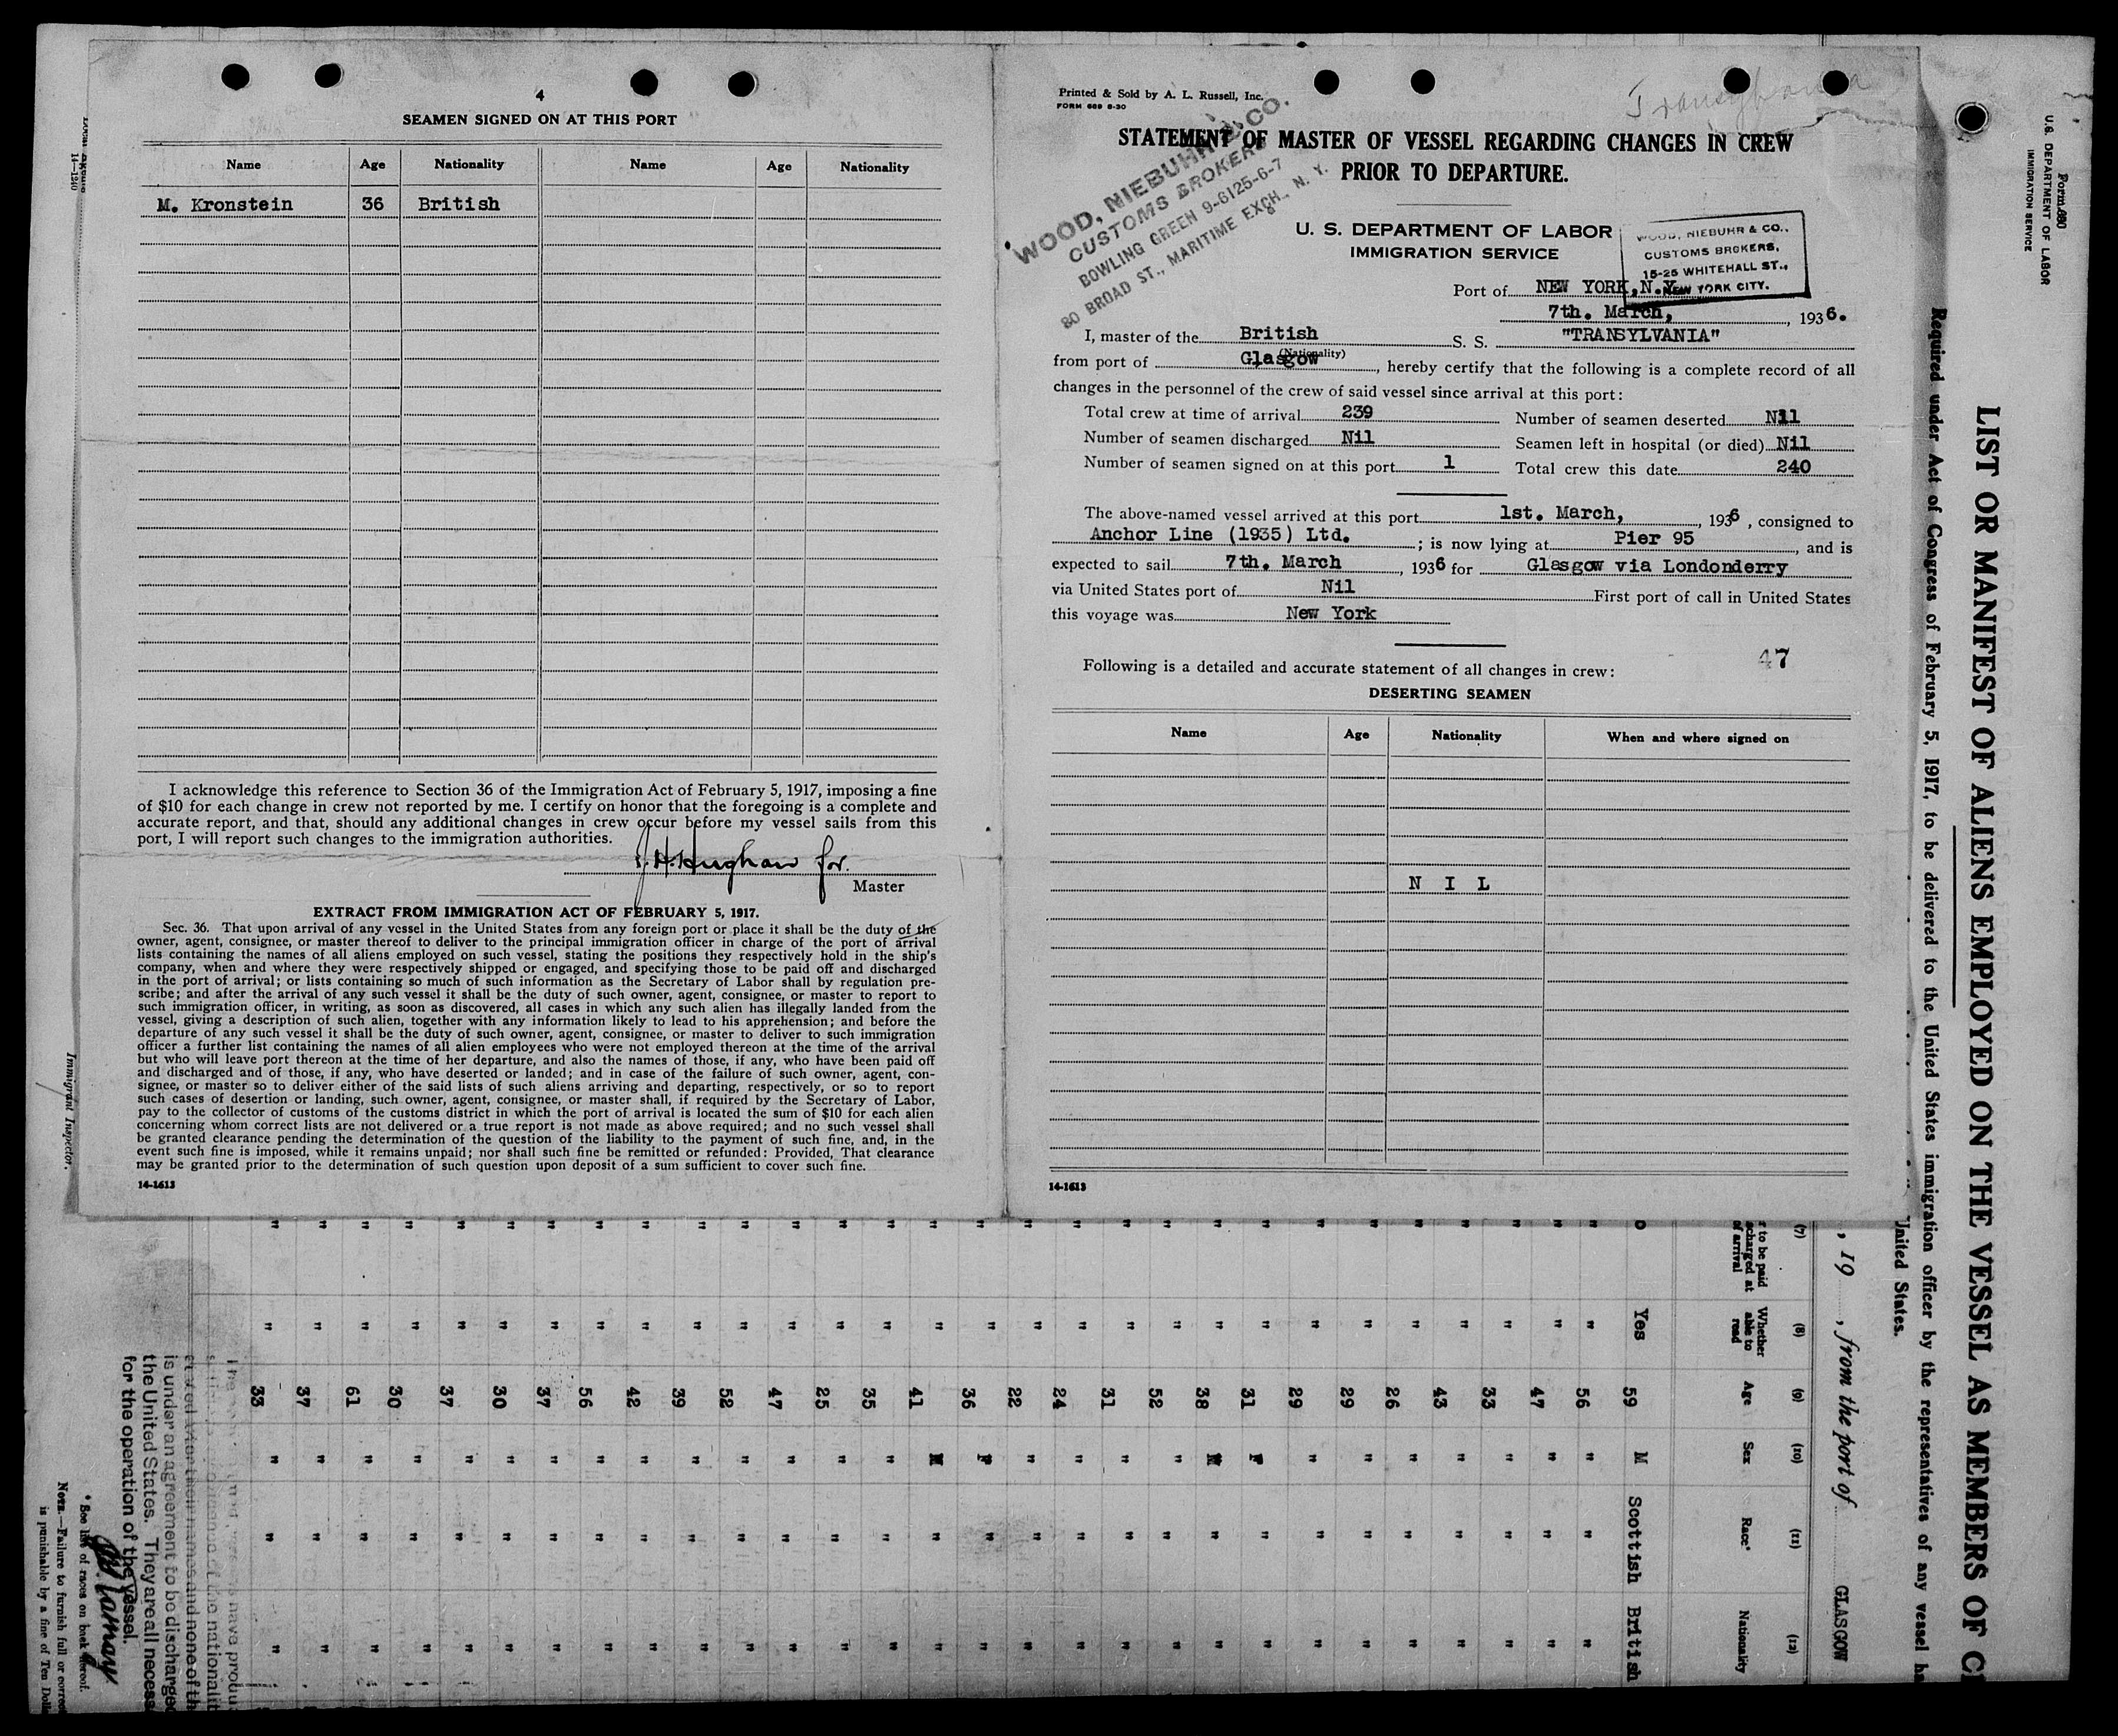 4
SEAMEN SIGNED ON AT THIS PORT
Name Age Nationality Name Age Nationality
M. Kronstein 36 British
I acknowledge this reference to Section 36 of the Immigration Act of February 5, 1917, imposing a fine
of $10 for each change in crew not reported by me. I certify on honor that the foregoing is a complete and
accurate report, and that, should any additional changes in crew occur before my vessel sails from this
port, I will report such changes to the immigration authorities.
for.
Master
EXTRACT FROM IMMIGRATION ACT OF FEBRUARY 5, 1917.
Sec. 36. That upon arrival of any vessel in the United States from any foreign port or place it shall be the duty of the
owner, agent, consignee, or master thereof to deliver to the principal immigration officer in charge of the port of arrival
lists containing the names of all aliens employed on such vessel, stating the positions they respectively hold in the ship's
company, when and where they were respectively shipped or engaged, and specifying those to be paid off and discharged
in the port of arrival; or lists containing so much of such information as the Secretary of Labor shall by regulation pre-
scribe; and after the arrival of any such vessel it shall be the duty of such owner, agent, consignee, or master to report to
such immigration officer, in writing, as soon as discovered, all cases in which any such alien has illegally landed from the
vessel, giving a description of such alien, together with any information likely to lead to his apprehension; and before the
departure of any such vessel it shall be the duty of such owner, agent, consignee, or master to deliver to such immigration
officer a further list containing the names of all alien employees who were not employed thereon at the time of the arrival
but who will leave port thereon at the time of her departure, and also the names of those, if any, who have been paid off
and discharged and of those, if any, who have deserted or landed; and in case of the failure of such owner, agent, con-
signee, or master so to deliver either of the said lists of such aliens arriving and departing, respectively, or so to report
such cases of desertion or landing, such owner, agent, consignee, or master shall, if required by the Secretary of Labor,
pay to the collector of customs of the customs district in which the port of arrival is located the sum of $10 for each alien
concerning whom correct lists are not delivered or a true report is not made as above required; and no such vessel shall
be granted clearance pending the determination of the question of the liability to the payment of such fine, and, in the
event such fine is imposed, while it remains unpaid; nor shall such fine be remitted or refunded: Provided, That clearance
may be granted prior to the determination of such question upon deposit of a sum sufficient to cover such fine.
14-1613
Printed & Sold by A. L. Russell, Inc.
FORM 689 8-30
Transylvania
STATEMENT OF MASTER OF VESSEL REGARDING CHANGES IN CREW
PRIOR TO DEPARTURE.
WOOD, NIEBUHR & CO.
CUSTOMS BROKERS
BOWLING GREEN 9-6125-6-7
80 BROAD ST., MARITIME EXCH., N. Y.
U. S. DEPARTMENT OF LABOR
IMMIGRATION SERVICE
WOOD, NIEBUHR & CO.,
CUSTOMS BROKERS,
15-25 WHITEHALL ST.,
NEW YORK CITY.
Port of NEW YORK, N.Y.
7th. March, 1936.
I, master of the British S. S. "TRANSYLVANIA"
(Nationality)
from port of Glasgow, hereby certify that the following is a complete record of all
changes in the personnel of the crew of said vessel since arrival at this port:
Total crew at time of arrival 239 Number of seamen deserted Nil
Number of seamen discharged Nil Seamen left in hospital (or died) Nil
Number of seamen signed on at this port 1 Total crew this date 240
The above-named vessel arrived at this port 1st. March, 1936, consigned to
Anchor Line (1935) Ltd. ; is now lying at Pier 95, and is
expected to sail 7th. March, 1936 for Glasgow via Londonderry
via United States port of Nil First port of call in United States
this voyage was New York
47
Following is a detailed and accurate statement of all changes in crew:
DESERTING SEAMEN
Name Age Nationality When and where signed on
N I L
14-1613
Form 680
U.S. DEPARTMENT OF LABOR
IMMIGRATION SERVICE
LIST OR MANIFEST OF ALIENS EMPLOYED ON THE VESSEL AS MEMBERS OF
Required under Act of Congress of February 5, 1917, to be delivered to the United States immigration officer by the representatives of any vessel
United States.
, 19 , from the port of GLASGOW
(7) (8) (9) (10) (11) (12)
to be paid
at
of arrival
Whether able to read
Age
Sex
Race*
Nationality
Yes 59 M Scottish British
" 56 " " "
" 47 " " "
" 33 " " "
" 43 " " "
" 26 " " "
" 29 " " "
" 29 " " "
" 31 F " "
" 38 M " "
" 52 " " "
" 31 " " "
" 24 " " "
" 22 " " "
" 36 F " "
" 41 M " "
" 35 " " "
" 25 " " "
" 47 " " "
" 52 " " "
" 39 " " "
" 42 " " "
" 56 " " "
" 37 " " "
" 30 " " "
" 37 " " "
" 30 " " "
" 61 " " "
" 37 " " "
" 33 " " "
is under an agreement to be discharged
the United States. They are all
for the operation of the vessel.
* See list of races on back hereof.
NOTE.—Failure to furnish full or
is punishable by a fine of Ten
Immigrant Inspector.
14-1240